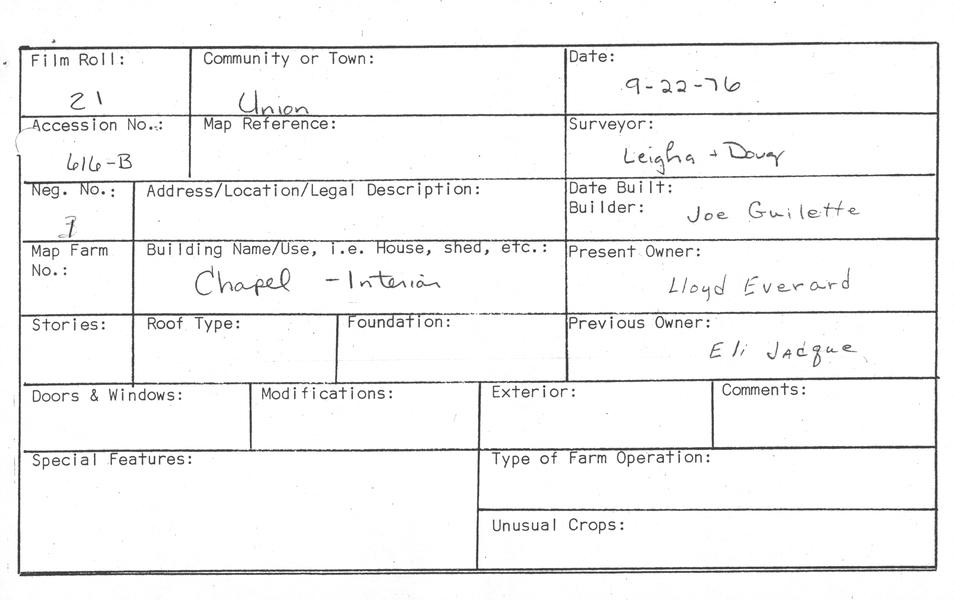 Film Roll:
21
Community or Town:
Union
Date:
9-22-76
Accession No.:
616-B
Map Reference:
Surveyor:
Leigha + Doug
Neg. No.:
7
Address/Location/Legal Description:
Date Built:
Builder: Joe Guilette
Map Farm
No.:
Building Name/Use, i.e. House, shed, etc.:
Chapel - Interior
Present Owner:
Lloyd Everard
Stories:
Roof Type:
Foundation:
Previous Owner:
Eli Jacque
Doors & Windows:
Modifications:
Exterior:
Comments:
Special Features:
Type of Farm Operation:
Unusual Crops: